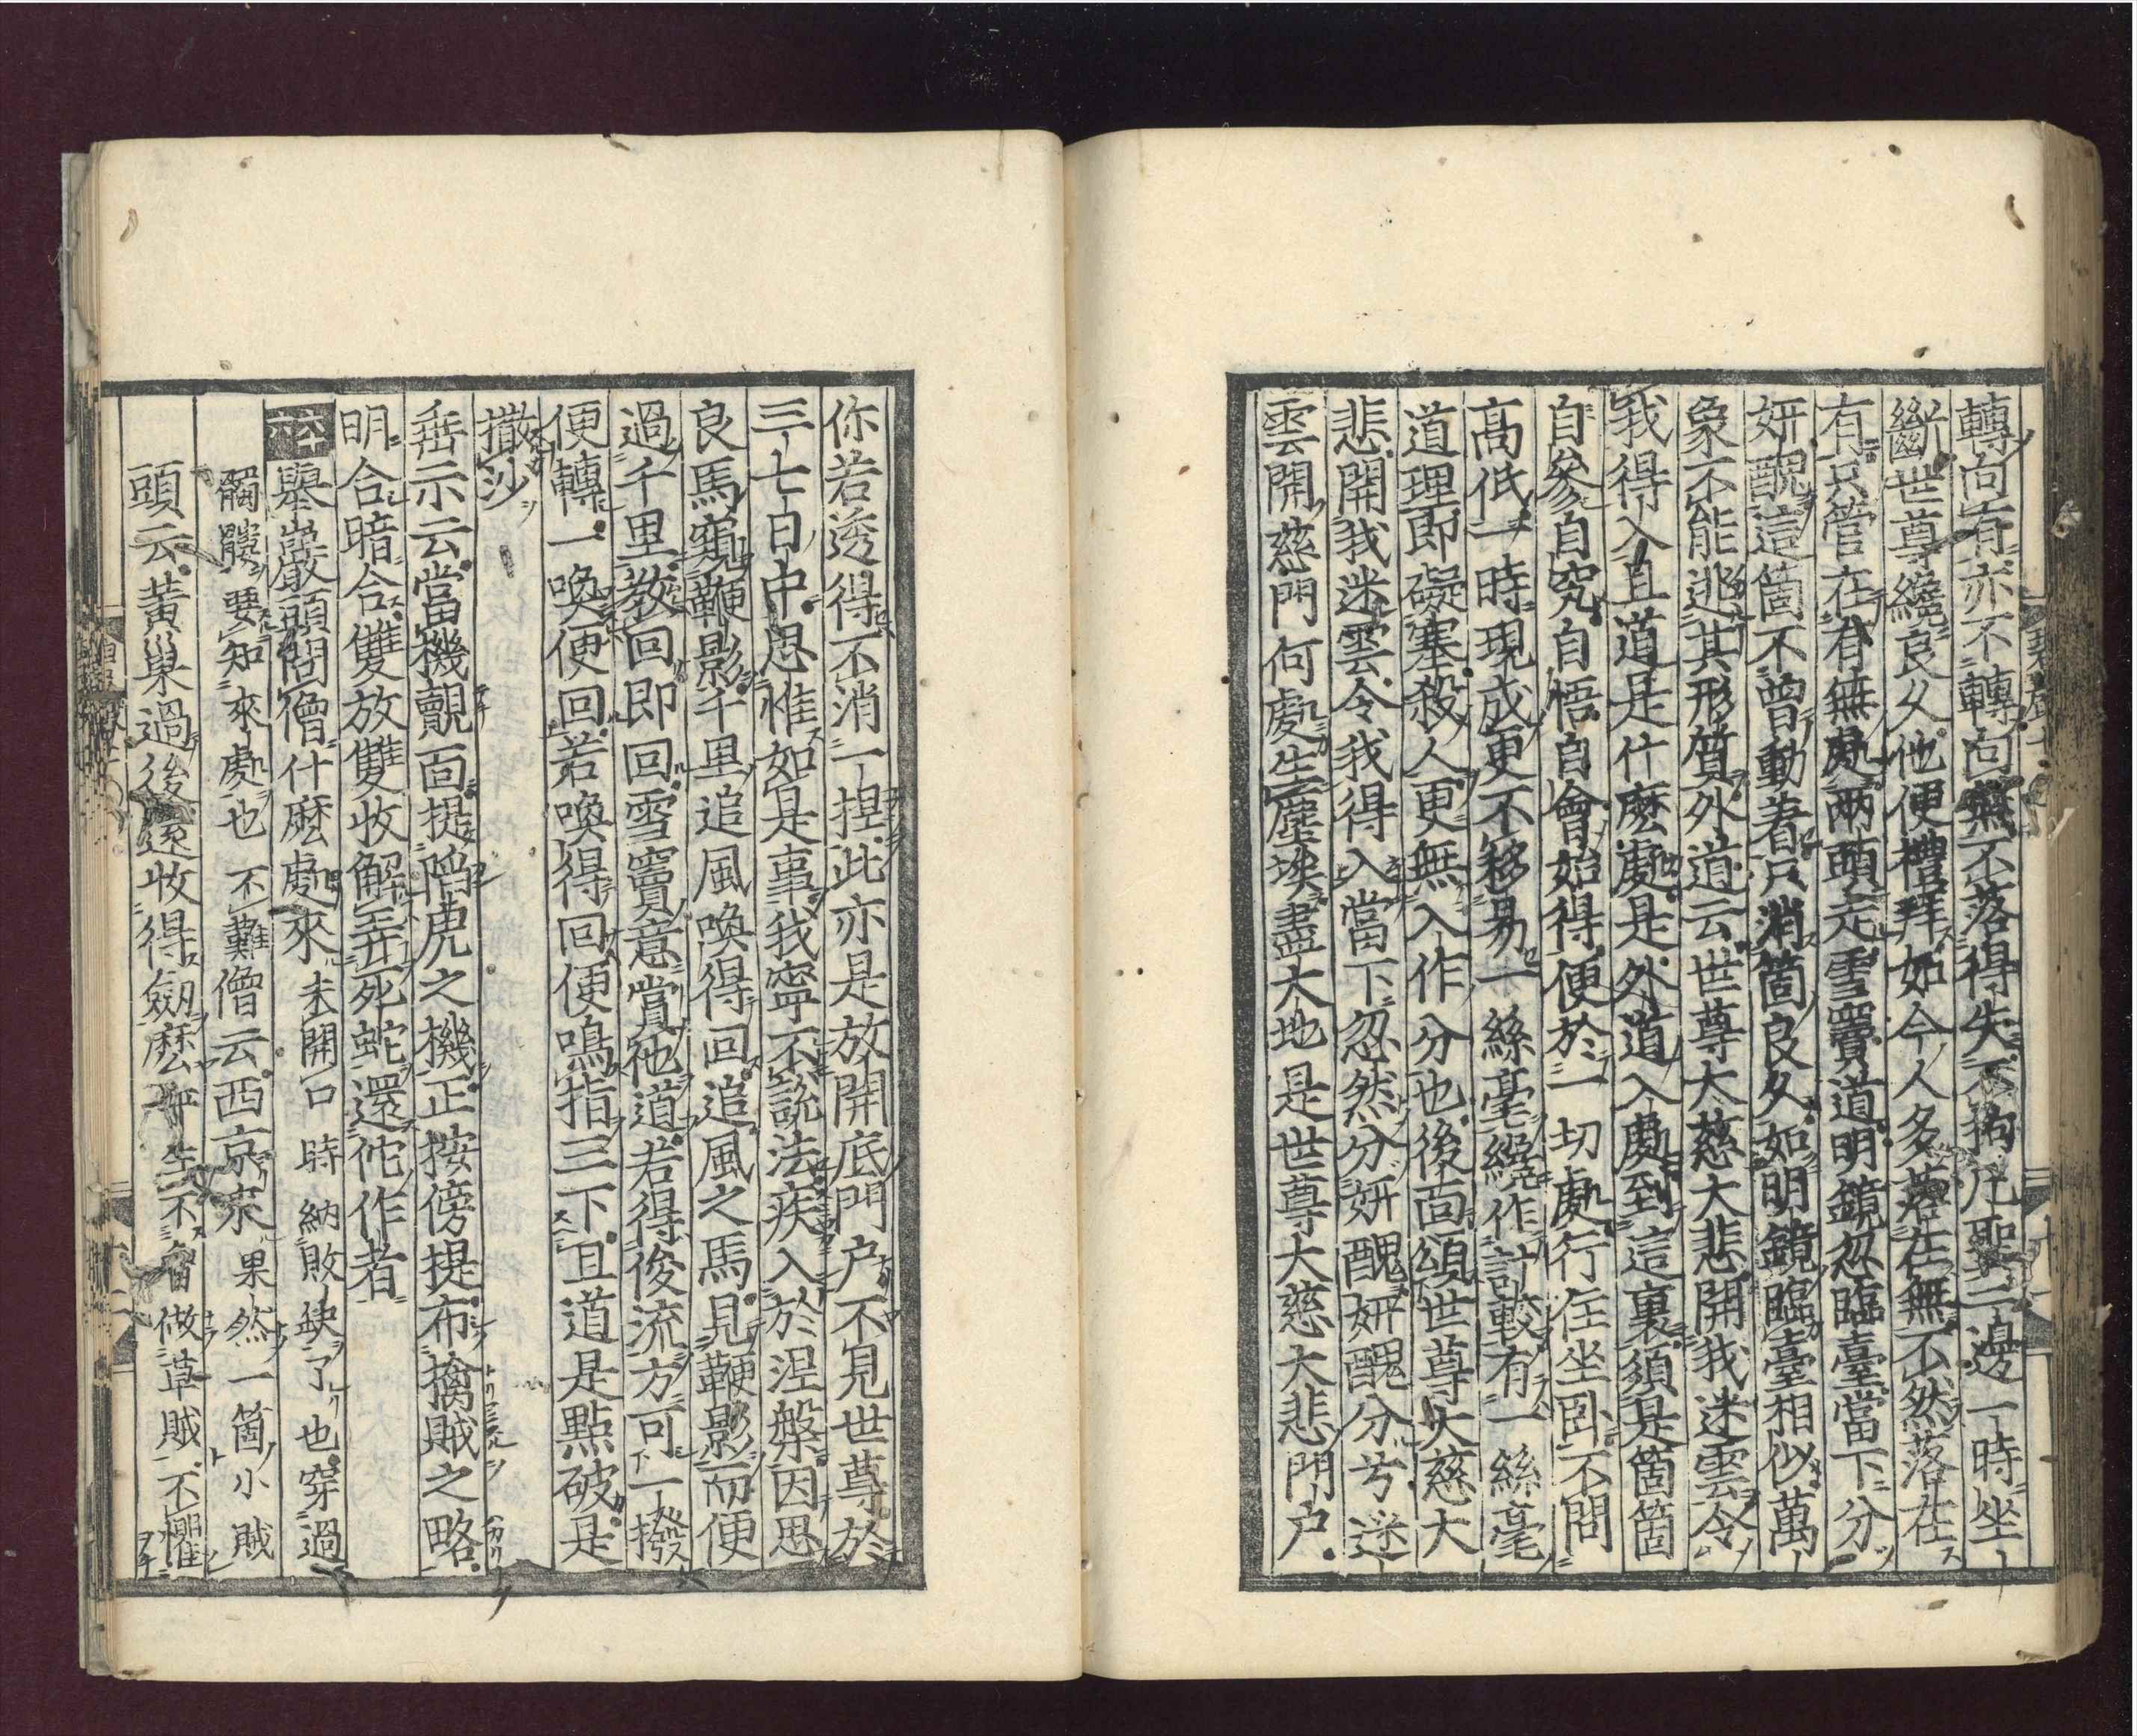 轉向有亦不轉向無不落得失不拘凡聖二邊一時坐
斷世尊纔良久他便禮拜如今人多落在無不然落在
有只管在有無處兩頭走雪竇道明鏡忽臨臺當下分
妍醜這箇不曾動著只消箇良久如明鏡臨臺相似萬
象不能逃其形質外道云世尊大慈大悲開我迷雲令
我得入且道是什麼處是外道入處到這裏須是箇箇
自參自究自悟自會始得便於一切處行住坐臥不問
高低一時現成更不移易一絲毫纔作計較有一絲毫
道理即礙塞殺人更無入作分也後面頌世尊大慈大
悲開我迷雲令我得入當下忽然分妍醜妍醜分兮迷
雲開慈門何處生塵埃盡大地是世尊大慈大悲門戶
你若透得不消一捏此亦是放開底門戶不見世尊於
三七日中思惟如是事我寧不說法疾入於涅槃因思
良馬窺鞭影千里追風喚得回追風之馬見鞭影而便
過千里教回即回雪竇意賞他道若得俊流方可一撥
便轉一喚便回若喚得回便鳴指三下且道是點破是
撒沙
垂示云當機覿面提陷虎之機正按傍提布擒賊之略
明合暗合雙放雙收解弄死蛇還佗作者
六十六 舉巖頭問僧什麼處來 未開口時納敗缺了也穿過
髑髏要知來處也不難 僧云西京來 果然一箇小賊
頭云黃巢過後還收得劒麼 平生不曾做草賊不懼